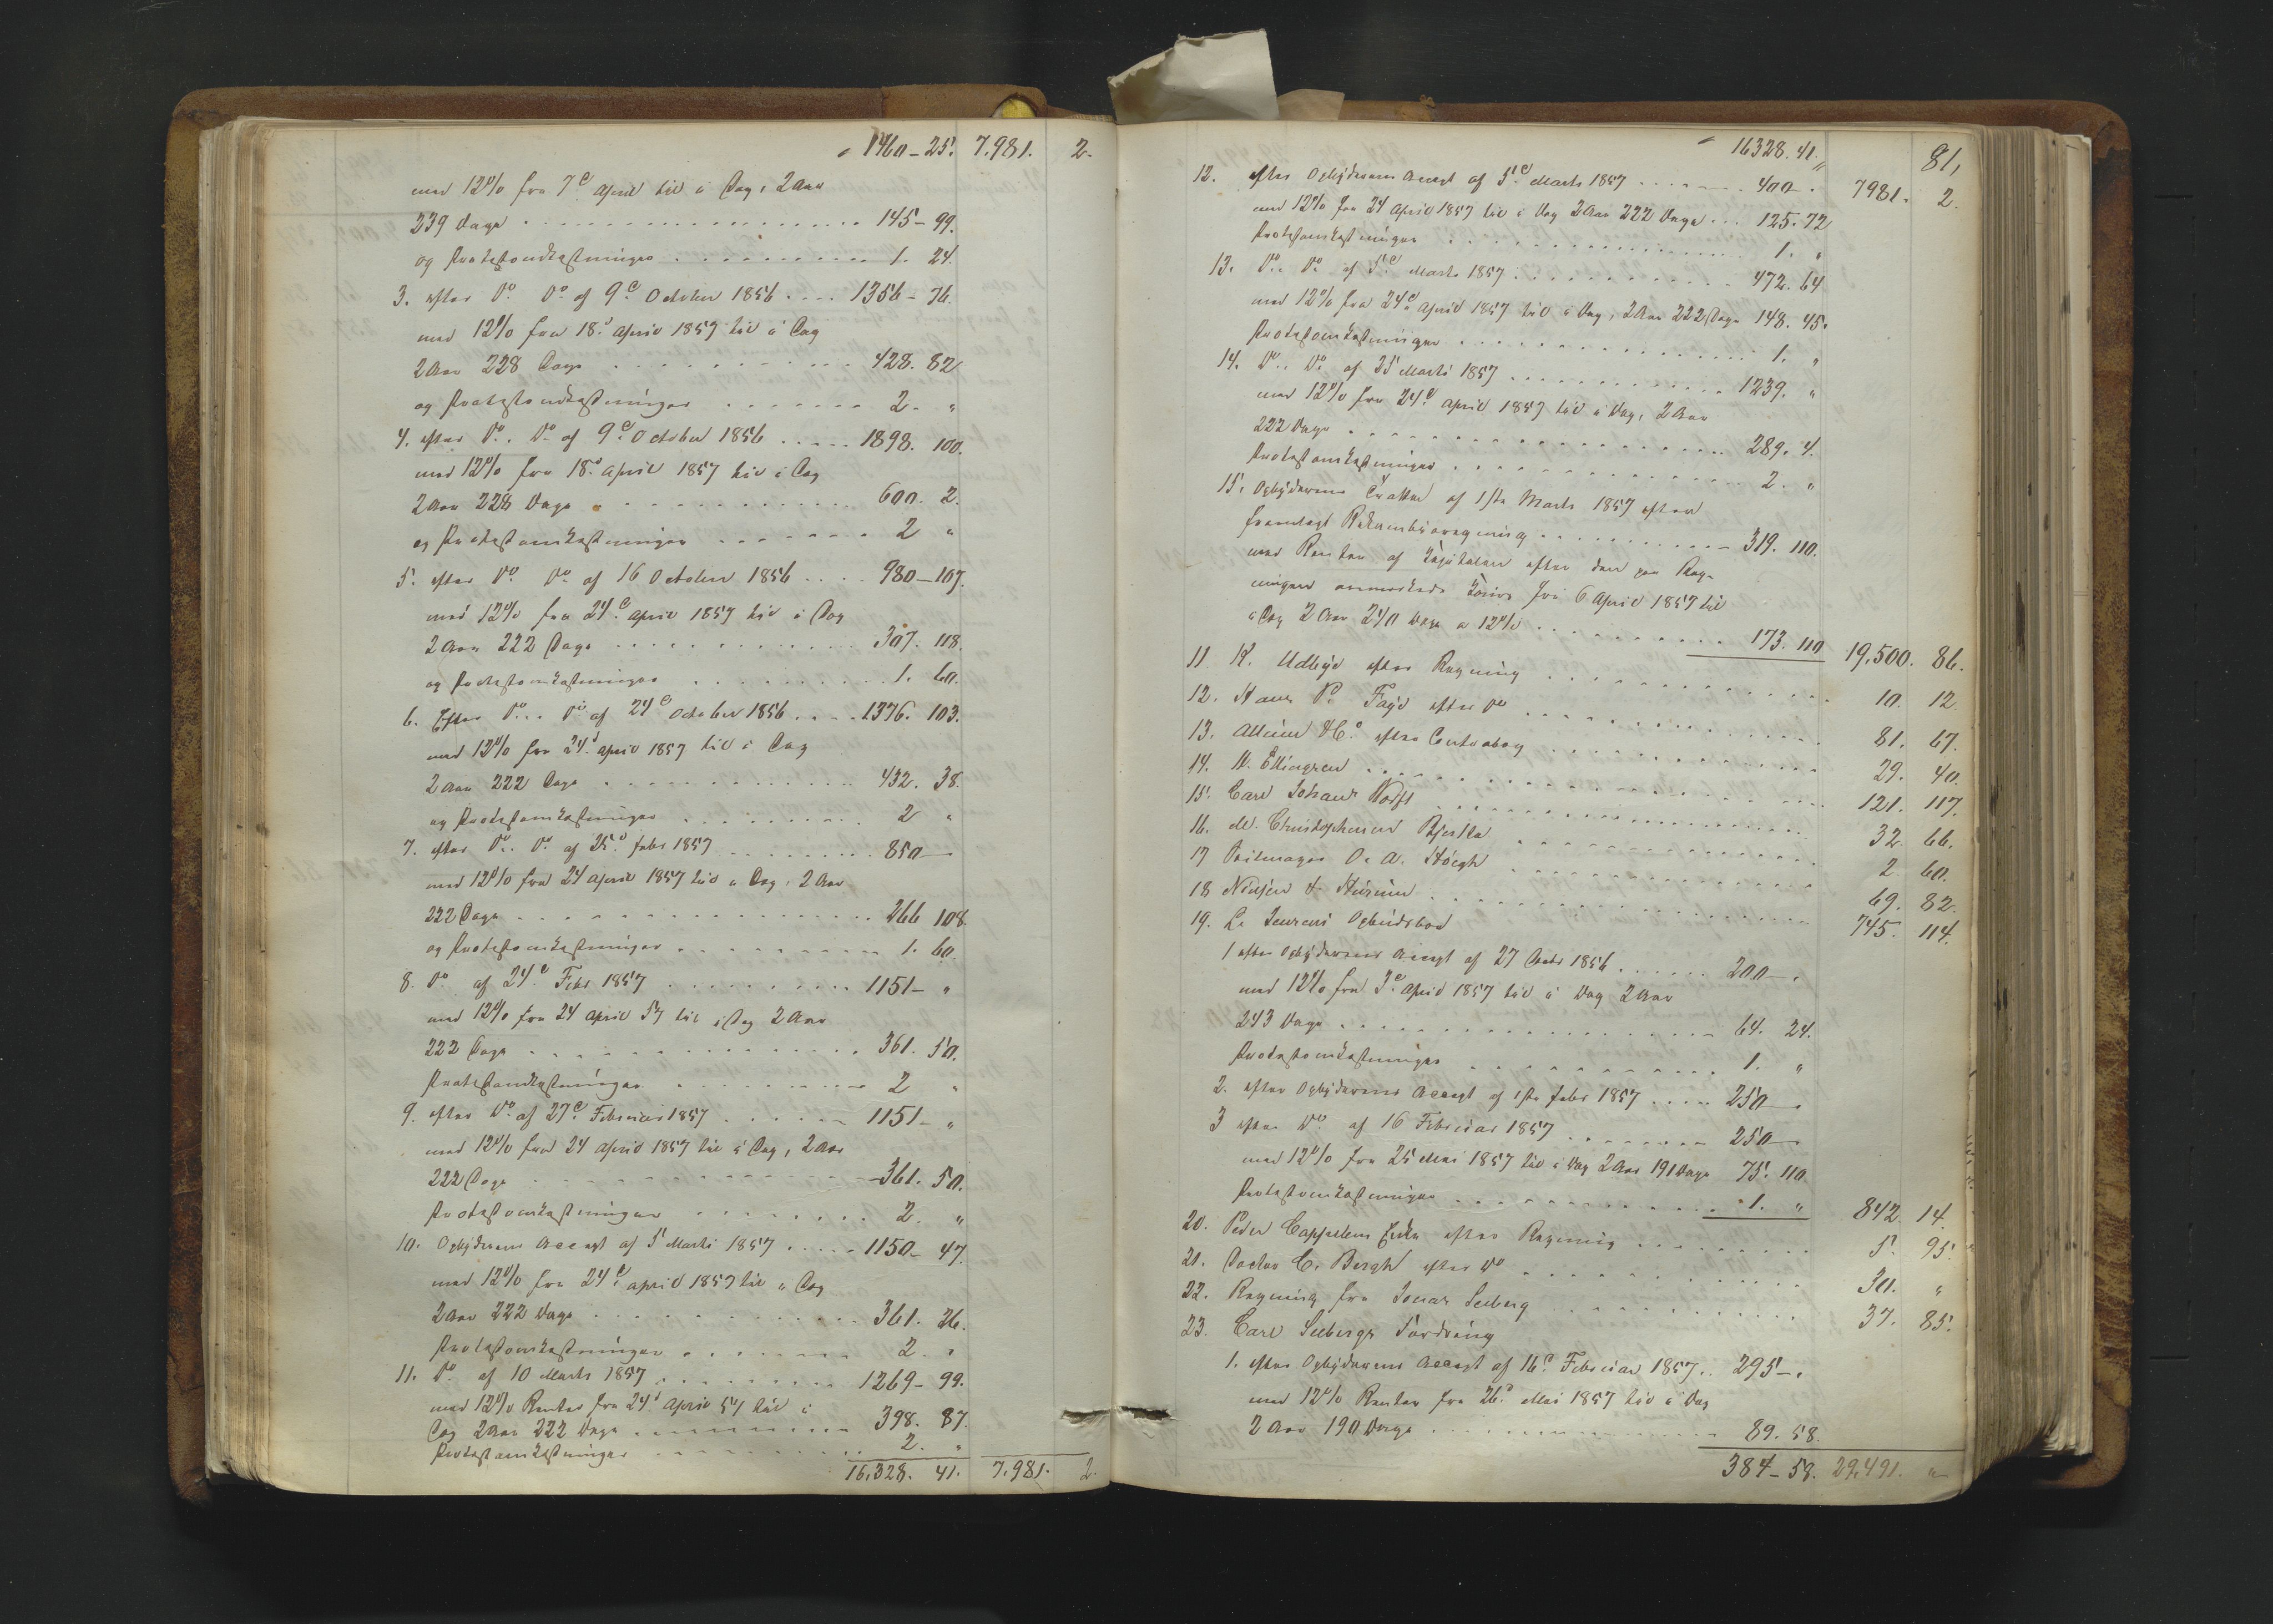 1460 - 25. 7.981. 2.
med 12% fra 7d April til i Dag, 2 Aar
239 Dage 145 - 99.
og Protestomkostninger 1. 24.
3. efter Do. Do. af 9d October 1856 1356 - 76.
med 12% fra 18d April 1857 til i Dag
2 Aar 228 Dage 428. 82
og Protestomkostninger 2. "
4. efter Do. Do. af 9d October 1856 1898. 100.
med 12% fra 18d April 1857 til i Dag
2 Aar 228 Dage 600. 2.
og Protestomkostninger 2 "
5. efter Do. Do. af 16 October 1856 980 - 107.
med 12% fra 24d April 1857 til i Dag
2 Aar 222 Dage 307. 118.
og Protestomkostninger 1. 60.
6. Efter Do. Do. af 24d October 1856 1376. 103.
med 12% fra 24d April 1857 til i Dag
2 Aar 222 Dage 432. 38.
og Protestomkostninger 2 "
7. efter Do. Do. af 25d Febr 1857 850 -
med 12% fra 24 April 1857 til i Dag, 2 Aar
222 Dage 266 108.
og Protestomkostninger 1. 60.
8. Do. af 24d Febr 1857 1151 - "
med 12% fra 24 April 57 til i Dag 2 Aar
222 Dage 361. 50.
Protestomkostninger 2 "
9. efter Do. af 27d Februar 1857 1151 - "
med 12% fra 24 April 1857 til i Dag, 2 Aar
222 Dage 361. 50.
Protestomkostninger 2. "
10. Opbyderens Accept af 5 Marts 1857 1150 - 47.
med 12% fra 24d April 1857 til i Dag
2 Aar 222 Dage 361. 26.
Protestomkostninger 2. "
11. Do. af 10 Marts 1857 1269 - 99.
med 12% Renter fra 24d April 57 til i
Dag 2 Aar 222 Dage 398. 87.
Protestomkostninger 2. "
16,328. 41. 7,981. 2.
81,
16328. 41. 7981. 2.
12. efter Opbyderens Accept af 5d Marts 1857 400 - .
med 12% fra 24 April 1857 til i Dag 2 Aar 222 Dage 125. 72
Protestomkostninger 1. "
13. Do. Do. af 5d Marts 1857 472. 64
med 12% fra 24d April 1857 til i Dag, 2 Aar 222 Dage 148. 45.
Protestomkostninger 1. "
14. Do. Do. af 25 Marts 1857 1239. "
med 12% fra 24d April 1857 til i Dag, 2 Aar
222 Dage 289. 4.
Protestomkostninger 2. "
15. Opbyderens Tratte af 1ste Marts 1857 efter
fremlagt Rekambioregning 319. 110.
med Renter af Kapitalen efter den paa Reg-
ningen anmærkede fra 6 April 1857 til
i Dag 2 Aar 240 Dage a 12% 173. 110 19,500. 86.
11 K. Udbye efter Regning 10. 12.
12. Hans P. Faye efter Do 81. 67.
13. Co. efter Contrabog 29. 40.
14. N. Ellingsen 121. 117.
15. Carl Johan 32. 66.
16. M. Christophersen 2. 60.
17 O. A. Høegh 69. 82.
18 Nielsen & 745. 114.
19. L. Jensens Opbudsbod
1 efter Opbyderens Accept af 27 1856 200 - .
med 12% fra 3d April 1857 til i Dag 2 Aar
243 Dage 64. 24.
Protestomkostninger 1. "
2. efter Opbyderens Accept af 1ste Febr 1857 250 - .
3 efter Do. af 16 Februar 1857 250 - .
med 12% fra 25 Mai 1857 til i Dag 2 Aar 191 Dage 75. 110.
Protestomkostninger 1. " 842 14.
20. Peder Cappelens Enke efter Regning 5. 95.
21. Doctor C. Bergh efter Do 30. "
22. Regning fra Jonas Seeberg 37. 85.
23. Carl Seebergs Fordring
1. efter Opbyderens Accept af 16d Februar 1857 295 - .
med 12% Renter fra 26d Mai 1857 til i Dag
2 Aar 190 Dage 89. 58.
384 - 58. 29,491. "